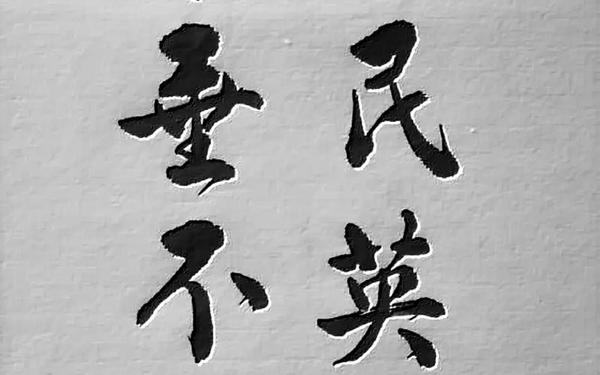 民英
垂不